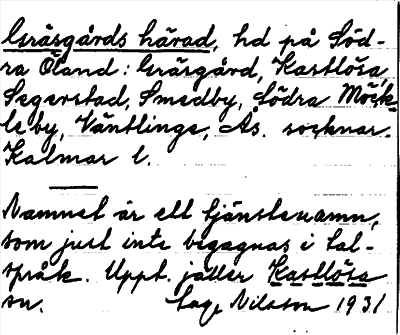 Gräsgårds härad, hd på Söd-
ra Öland: Gräsgård, Kastlösa,
Segerstad, Smedby, Södra Möck-
leby, Ventlinge, Ås. socknar.
Kalmar l.
Namnet är ett tjänstenamn,
som just inte begagnas i tal-
språk. Uppt. jäller Kastlösa
sn. Nilsson 1931